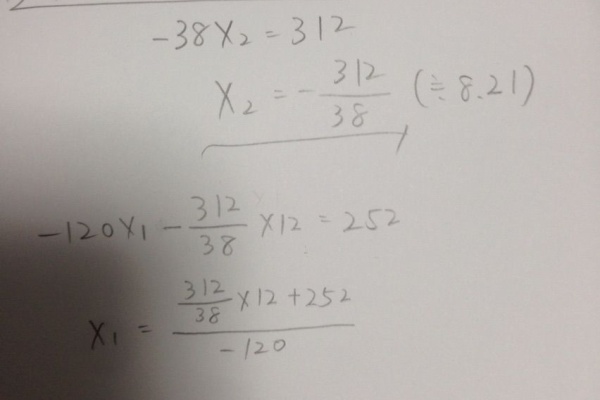 -38X₂ = 312
X₂ = - 312/38 (≒ 8.21)
-120X₁ - 312/38 × 12 = 252
X₁ = (312/38 × 12 + 252)/-120